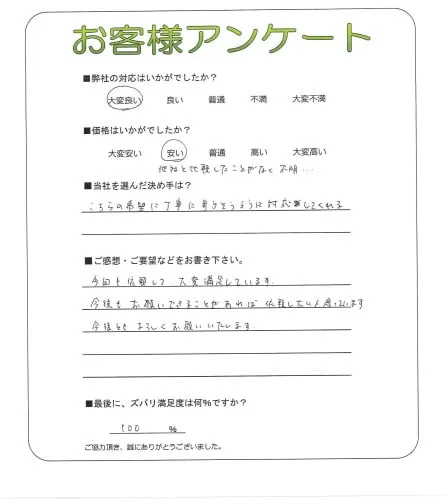 お客様アンケート
■弊社の対応はいかがでしたか？
大変良い 良い 普通 不満 大変不満
■価格はいかがでしたか？
大変安い 安い 普通 高い 大変高い
他社と比較したことがなく不明…
■当社を選んだ決め手は？
こちらの希望に丁寧に 対応してくれる
■ご感想・ご要望などをお書き下さい。
今回も依頼して大変満足しています。
今後もお願いできることがあれば依頼したいと思っています
今後ともよろしくお願いいたします。
■最後に、ズバリ満足度は何％ですか？
100 ％
ご協力頂き、誠にありがとうございました。